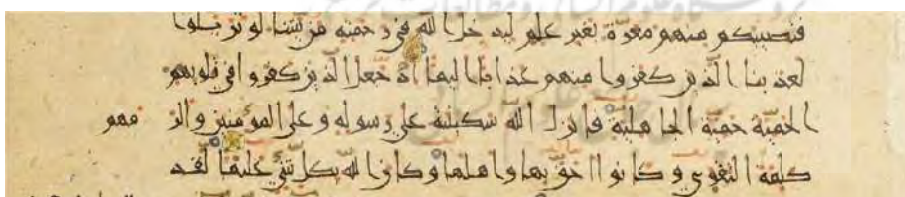 فتصيبكم منهم معرة بغير علم ليدخل الله في رحمته من يشا لو تزيلوا
لعذبنا الذين كفروا منهم عذابا اليما اذ جعل الذين كفروا في قلوبهم
الحمية حمية الجاهلية فانزل الله سكينته على رسوله وعلى المؤمنين والزمهم
كلمة التقوى وكانوا احق بها واهلها وكان الله بكل شي عليما لقد